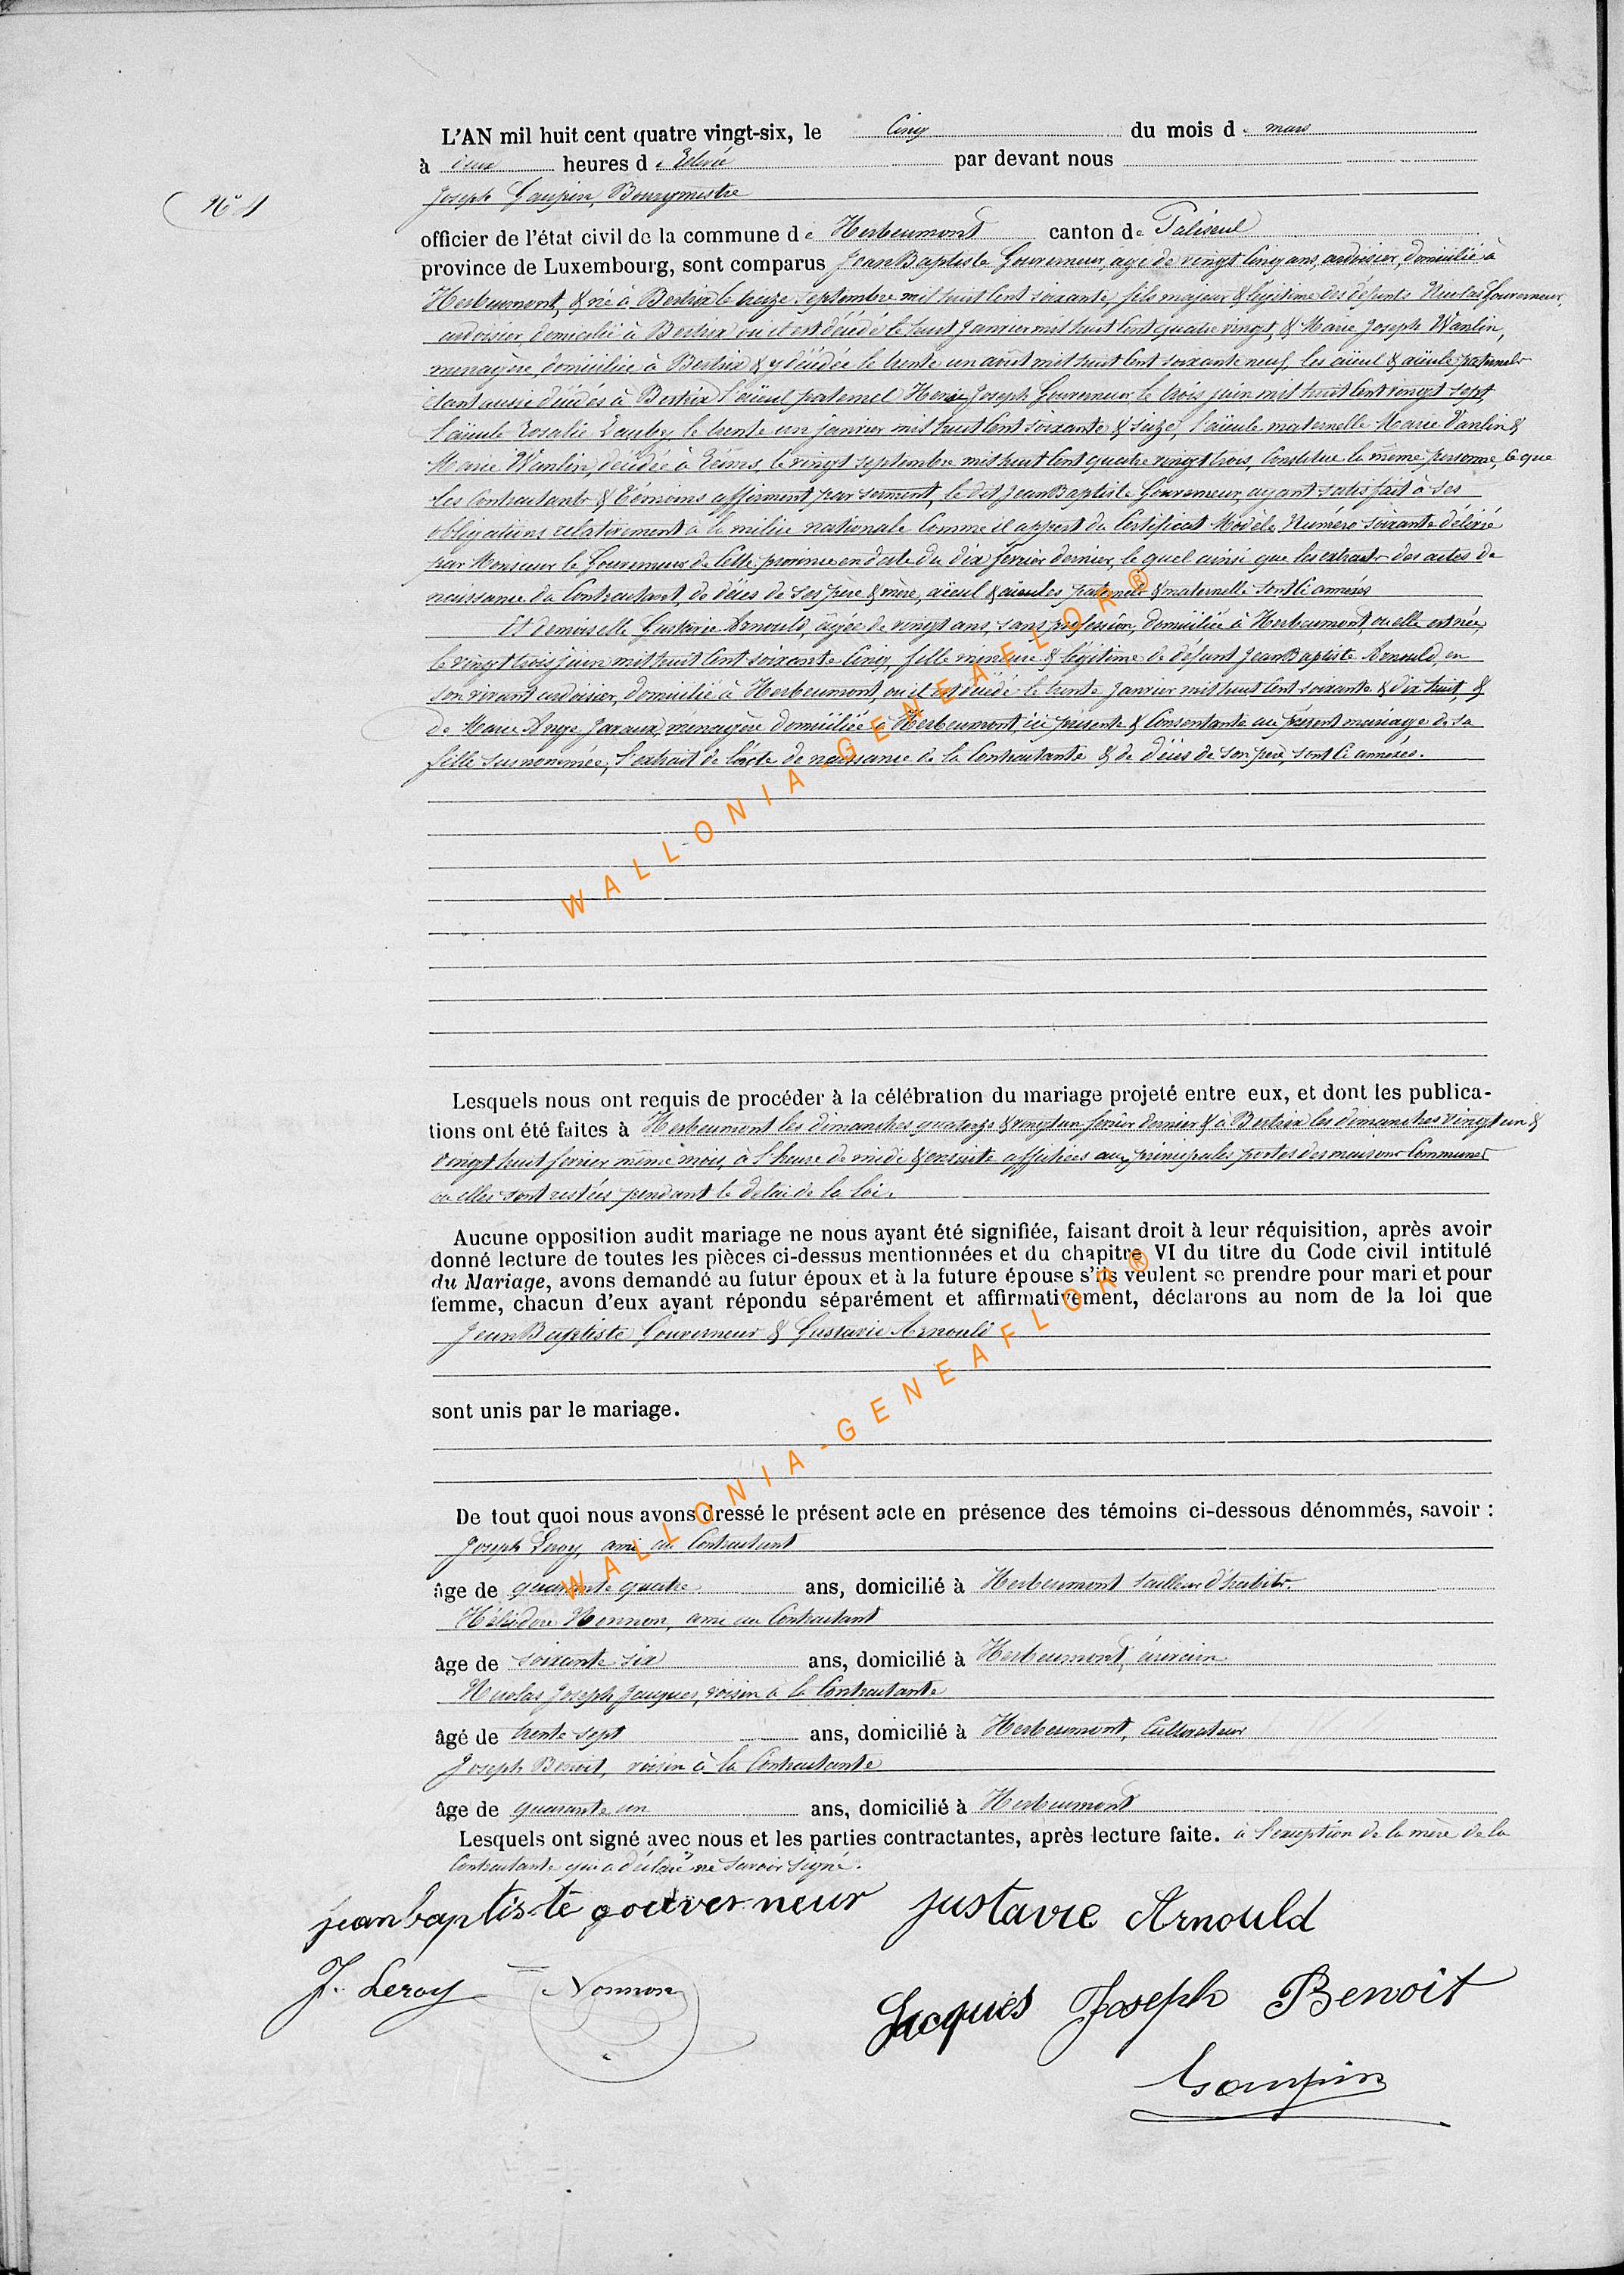 L'AN mil huit cent quatre vingt-six, le Cinq du mois de mars
à deux heures de Relevée par devant nous
Nº 4
Joseph Gaupin, Bourgmestre
officier de l'état civil de la commune de Herbeumont canton de Paliseul
province de Luxembourg, sont comparus Jean Baptiste Gouverneur, agé de vingt Cinq ans, ardoisier, domicilié à
Herbeumont, & né à Bertrix le treize septembre mil huit Cent soixante, fils majeur & légitime des défunts Nicolas Gouverneur,
ardoisier, domicilié à Bertrix où il est décédé le huit Janvier mil huit Cent quatre vingt, & Marie Joseph Wanlin,
menagère, domiciliée à Bertrix & y décédée le trente un août mil huit Cent soixante neuf, les aïeul & aïeule paternels
étant aussi décédés à Bertrix l'aïeul paternel Henri Joseph Gouverneur le trois juin mil huit Cent vingt sept,
l'aïeule Rosalie le trente un janvier mil huit Cent soixante & seize, l'aïeule maternelle Marie Vanlin &
Marie Wanlin, décédée à le vingt septembre mil huit Cent quatre vingt trois, Constitue la même personne, Ce que
les Contractants & témoins affirment par serment, le dit Jean Baptiste Gouverneur, ayant satisfait à ses
obligations relativement à la milice nationale Comme il appert du Certificat Modèle Numéro soixante délivré
par Monsieur le Gouverneur de Cette province en date du dix fevrier dernier, le quel ainsi que les extraits des actes de
naissance du Contractant, de décès de ses père & mère, aïeul & aïeules paternels & maternelle sont Ci annexés
Et demoiselle Gustavie Arnould, âgée de vingt ans, sans profession, domiciliée à Herbeumont, où elle est née,
le vingt trois juin mil huit Cent soixante Cinq, fille mineure & légitime de défunt Jean Baptiste Arnould, en
son vivant ardoisier, domicilié à Herbeumont, où il est décédé le trente Janvier mil huit Cent soixante & dix huit, &
de Marie Ange menagère domiciliée à Herbeumont, ici présente & Consentante au présent mariage de sa
fille susnommée, l'extrait de l'acte de naissance de la Contractante & de décès de son père, sont Ci annexés.
Lesquels nous ont requis de procéder à la célébration du mariage projeté entre eux, et dont les publica-
tions ont été faites à Herbeumont les dimanches quatorze & vingt un fevrier dernier & à Bertrix les dimanches vingt un &
vingt huit fevrier même mois, à l'heure de midi & ensuite affichées aux principales portes des maisons Communes
où elles sont restées pendant le delai de la loi.
Aucune opposition audit mariage ne nous ayant été signifiée, faisant droit à leur réquisition, après avoir
donné lecture de toutes les pièces ci-dessus mentionnées et du chapitre VI du titre du Code civil intitulé
du Mariage, avons demandé au futur époux et à la future épouse s'ils veulent se prendre pour mari et pour
femme, chacun d'eux ayant répondu séparément et affirmativement, déclarons au nom de la loi que
Jean Baptiste Gouverneur & Gustavie Arnould
sont unis par le mariage.
De tout quoi nous avons dressé le présent acte en présence des témoins ci-dessous dénommés, savoir :
Joseph Leroy, ami au Contractant
âge de quarante quatre ans, domicilié à Herbeumont tailleur d'habits.
Héliodore Nonnon, ami au Contractant
âge de soixante six ans, domicilié à Herbeumont, écrivain
Nicolas Joseph Jacques, voisin à la Contractante
âgé de trente sept ans, domicilié à Herbeumont, Cultivateur
Joseph Benoit, voisin à la Contractante
âge de quarante un ans, domicilié à Herbeumont
Lesquels ont signé avec nous et les parties contractantes, après lecture faite. à l'exception de la mère de la
Contractante qui a déclaré ne savoir signé.
jeanbaptiste gouverneur justavie Arnould
J. Leroy Nonnon Jacques Joseph Benoit
Gaupin
WALLONIA-GENEAFLOR®
WALLONIA-GENEAFLOR®